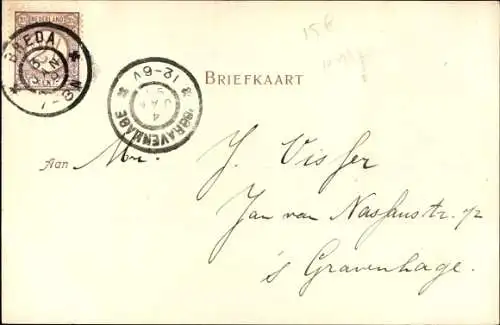 NEDERLAND
BREDA
15€
'SGRAVENHAGE
12-6V
4
JAN
BRIEFKAART
Aan Mr. J. Visser
Jan van Nassaustr.
's Gravenhage.